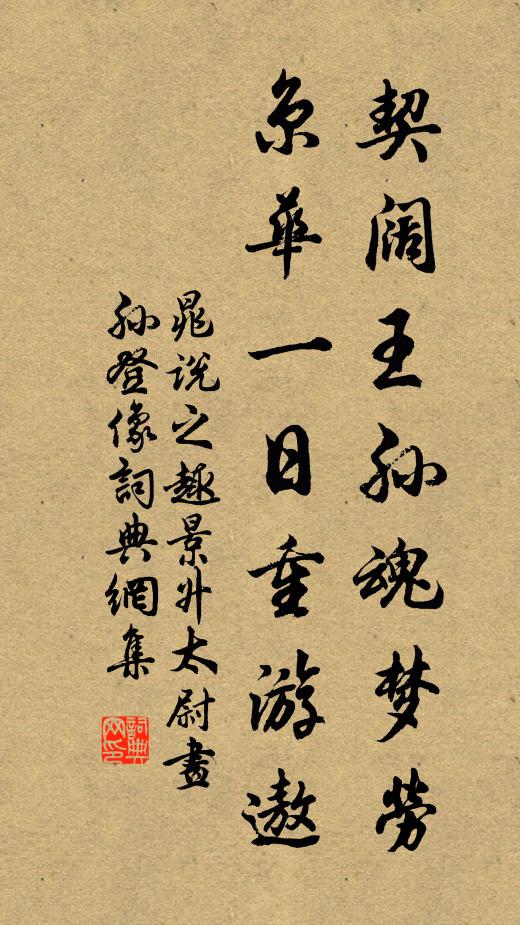 契阔王孙魂梦劳
京华一日重游遨
晁说之趣景升太尉畫
孙登像詞典網集
詞典网印